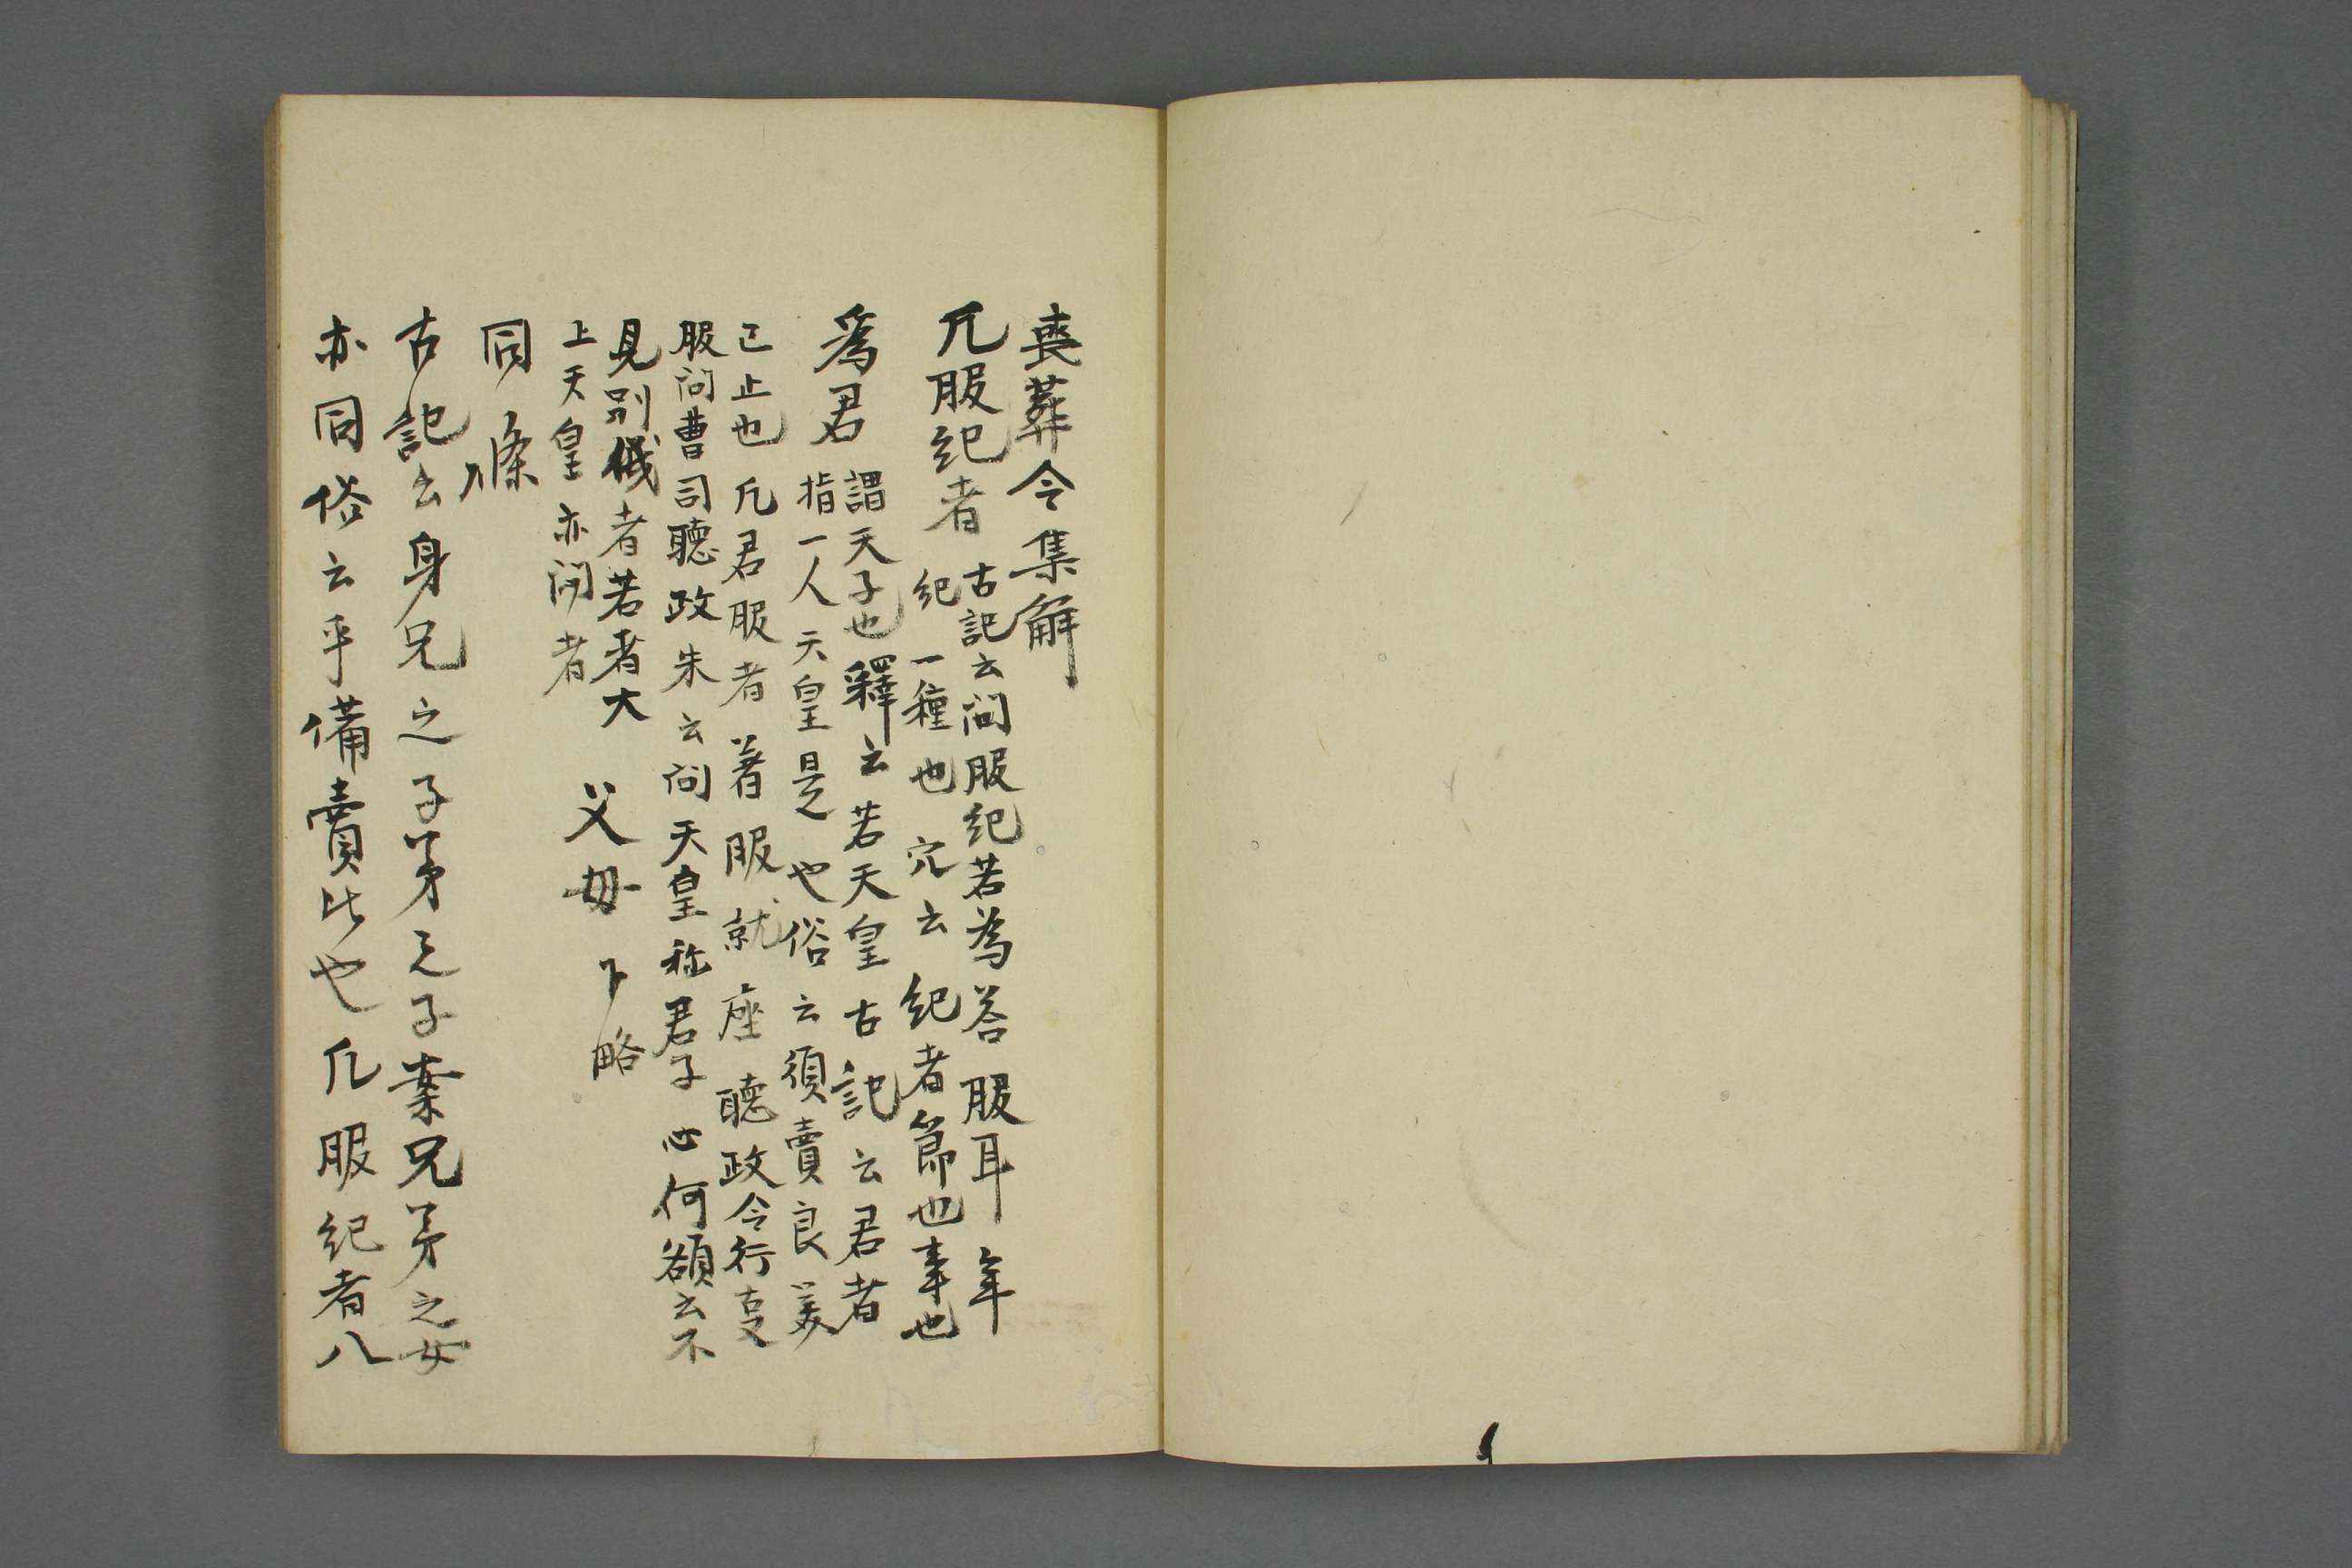 喪葬令集解
凡服紀者 古記云問服紀若為荅服耳年
紀一種也穴云紀者節也事也
為君 謂天子也釋云若天皇古記云君者
指一人天皇是也俗云須賣良美
己止也凡君服者著服就座聽政令行
服問曹司聽政朱云問天皇称君子心何額云不
見別儀者若者大
上天皇亦問者 父母下略
同條
古記云身兄之子弟之子案兄弟之女
亦同俗云乎備賣比也凡服紀者八